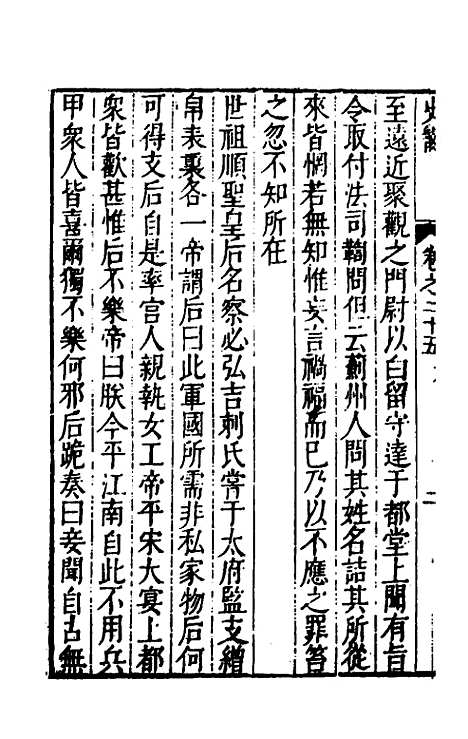 史 卷之二十五 二
至遠近聚觀之門尉以白留守達于都堂上聞有旨
令取付法司鞫問但云薊州人問其姓名詰其所從
來皆惘若無知惟妄言禍福而已乃以不應之罪笞
之忽不知所在
世祖順聖皇后名察必弘吉剌氏常于太府監支繒
帛表裏各一帝謂后曰此軍國所需非私家物后何
可得支后自是率宮人親執女工帝平宋大宴上都
衆皆歡甚惟后不樂帝曰朕今平江南自此不用兵
甲衆人皆喜爾獨不樂何邪后跪奏曰妾聞自古無